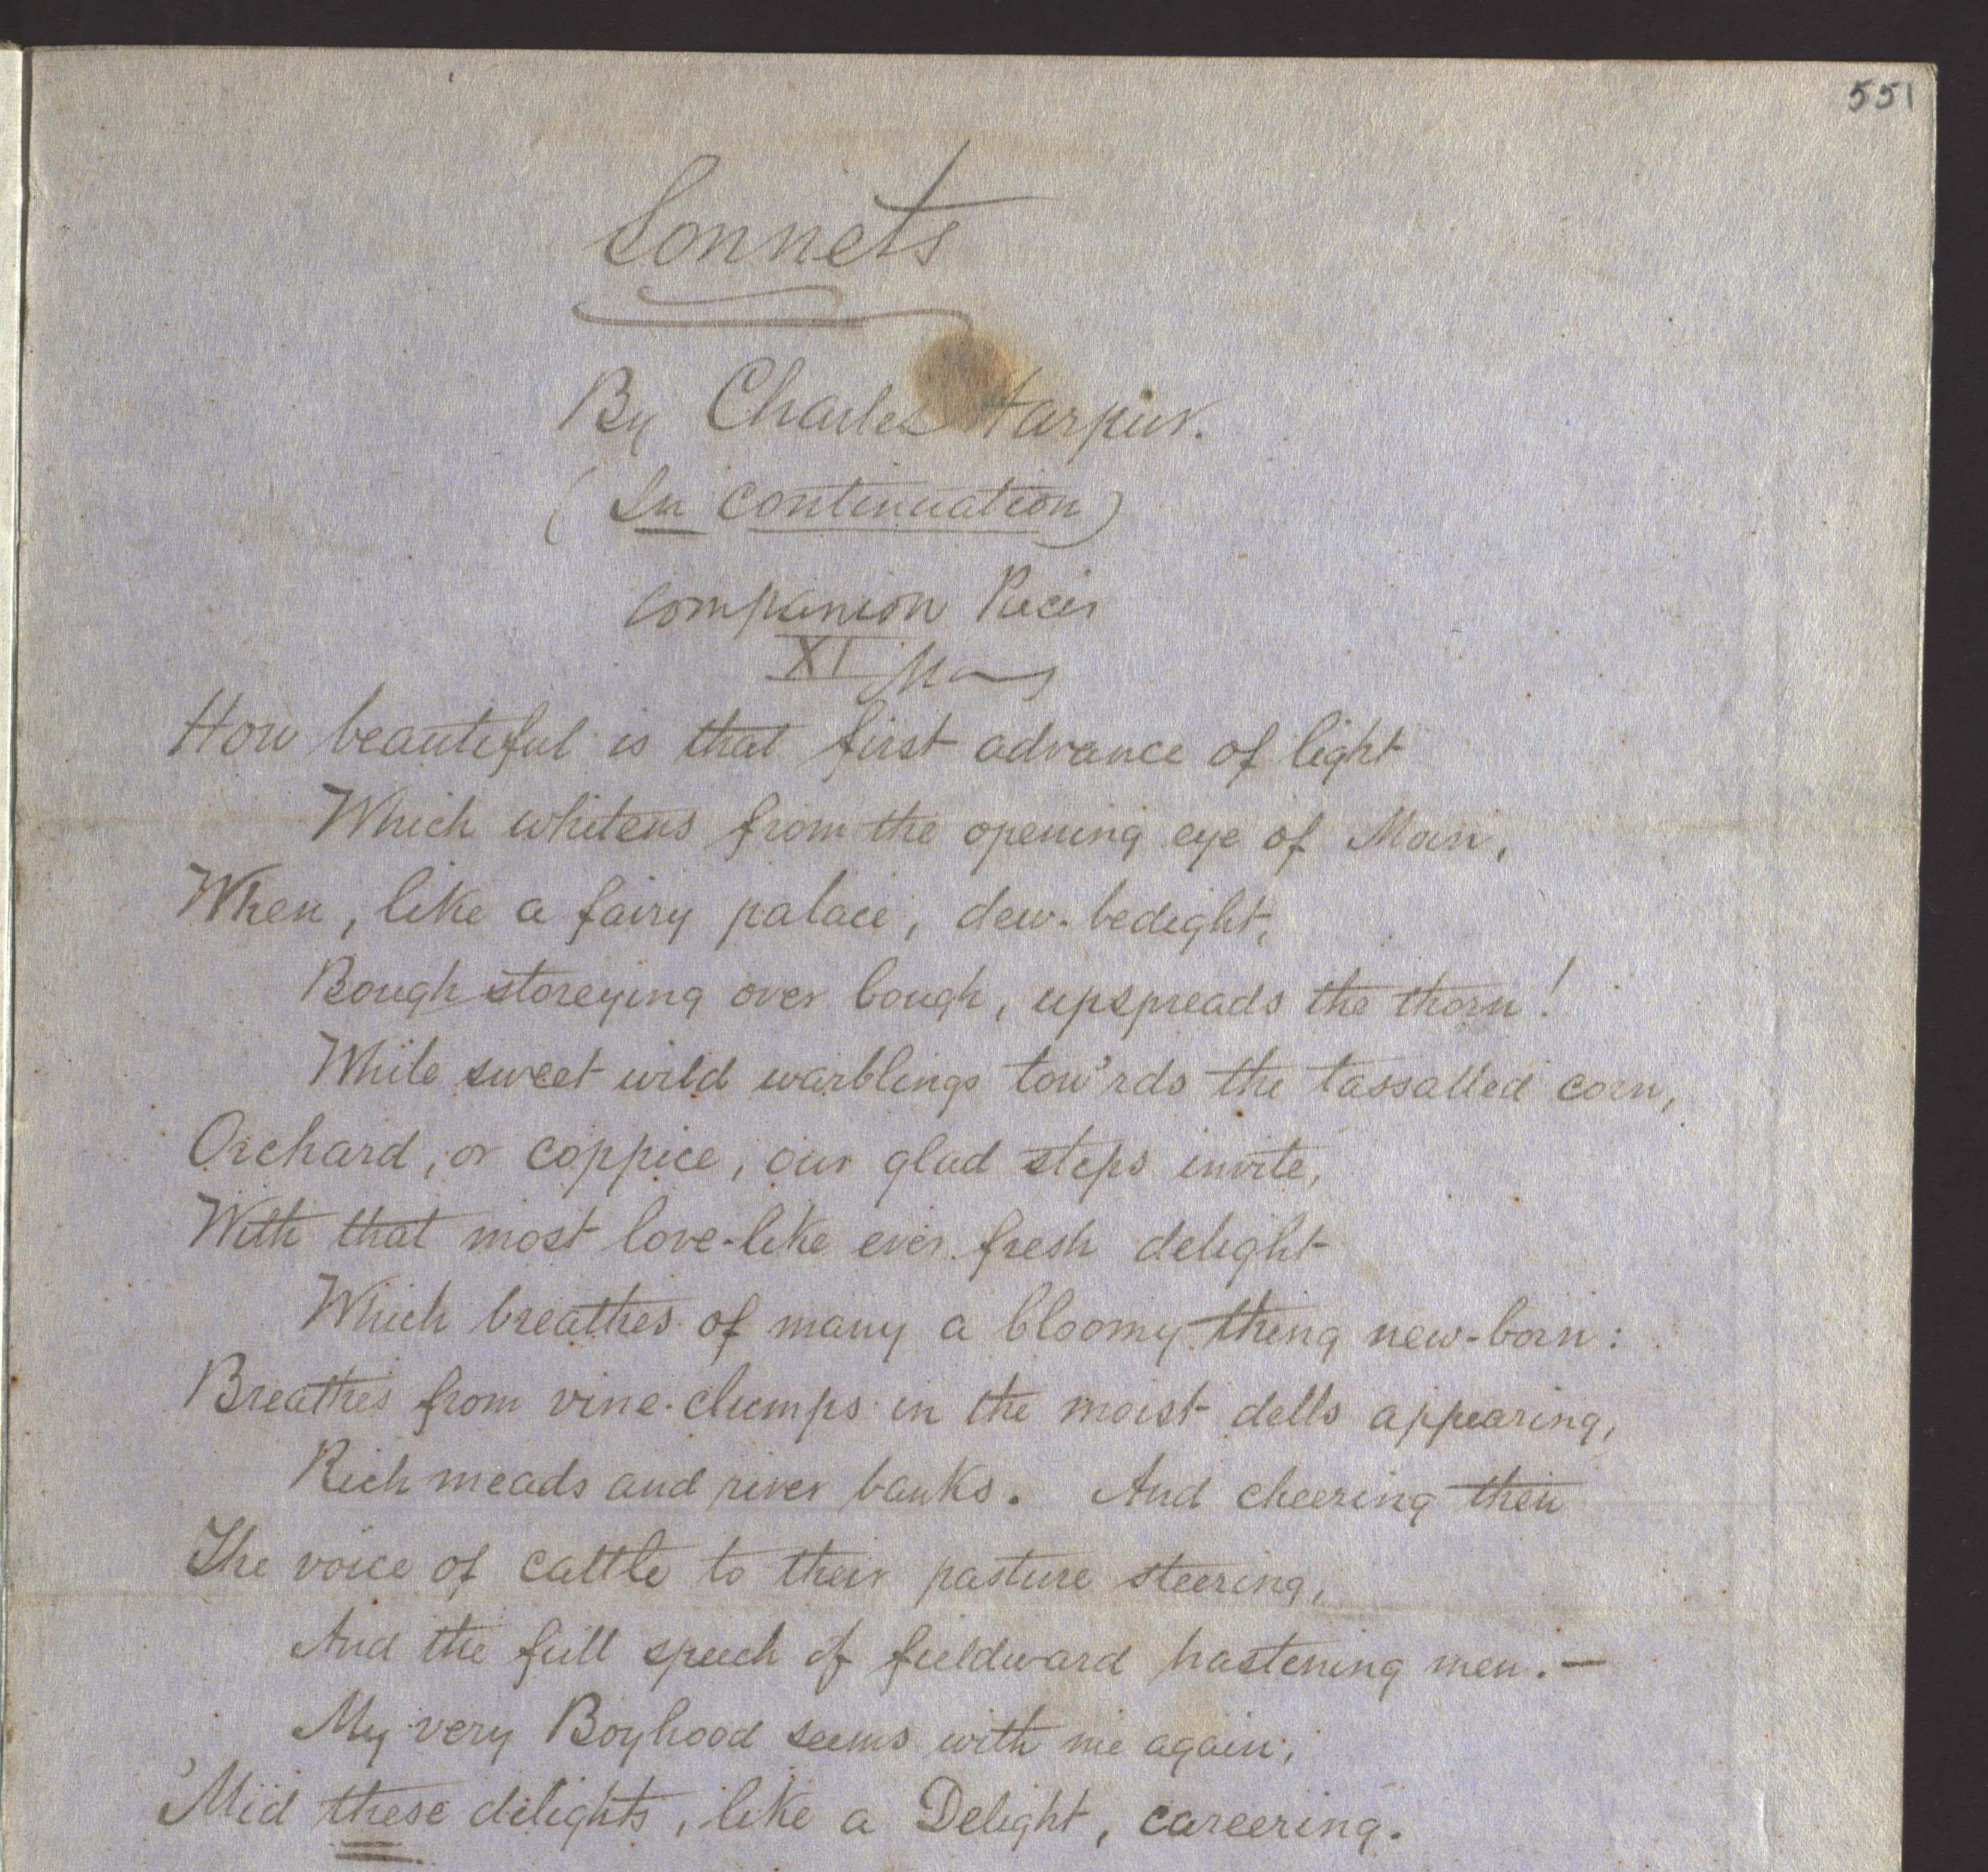 551
Sonnets
By Charles Harpur.
(In continuation)
Companion Pieces
XI
How beautiful is that first advance of light
Which whitens from the opening eye of Morn,
When, like a fairy palace, dew-bedight,
Bough storeying over bough, upspreads the thorn!
While sweet wild warblings tow'rds the tassalled corn,
Orchard, or coppice, our glad steps invite,
With that most love-like ever fresh delight
Which breathes of many a bloomy thing new-born:
Breathes from vine-clumps in the moist dells appearing,
Rich meads and river banks. And cheering then
The voice of cattle to their pasture steering,
And the full speech of fieldward hastening men.—
My very Boyhood seems with me again,
'Mid these delights, like a Delight, careering.